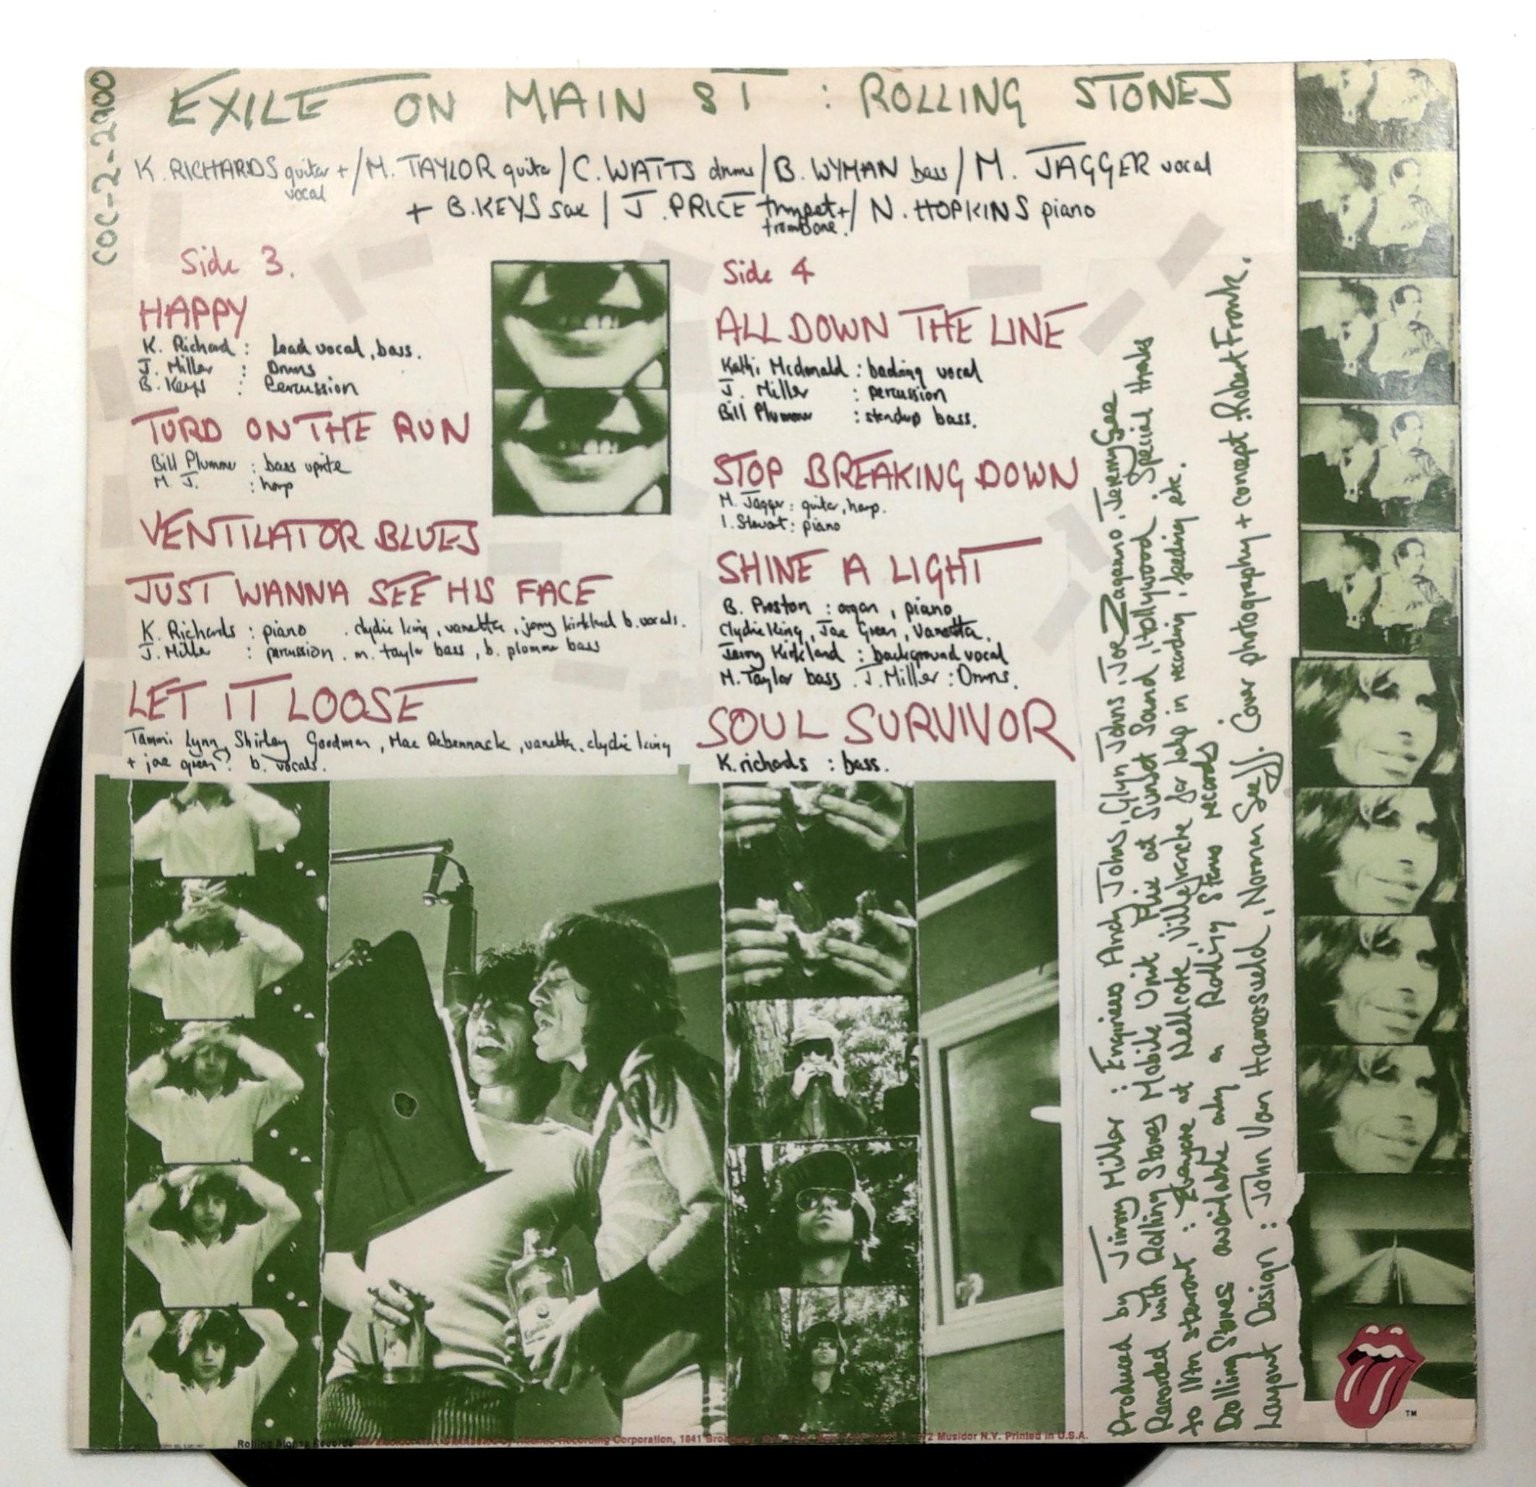 COC-2-2900
EXILE ON MAIN ST : ROLLING STONES
K. RICHARDS guitar + vocal / M. TAYLOR guitar / C. WATTS drums / B. WYMAN bass / M. JAGGER vocal
+ B. KEYS sax / J. PRICE trumpet + trombone. / N. HOPKINS piano
Side 3.
HAPPY
K. Richard : Lead vocal, bass.
J. Miller : Drums
B. Keys : Percussion
TURD ON THE RUN
Bill Plummer : bass uprite
M. J. : harp
VENTILATOR BLUES
JUST WANNA SEE HIS FACE
K. Richards : piano . clydie king, vanetta, jerry kirkland b. vocals.
J. Miller : percussion. m. taylor bass, b. plummer bass
LET IT LOOSE
Tammi Lynn, Shirley Goodman, Mac Rebennack, vanetta, clydie king
+ joe green? b. vocals.
Side 4
ALL DOWN THE LINE
Kathi Mcdonald : backing vocal
J. Miller : percussion
Bill Plummer : standup bass.
STOP BREAKING DOWN
M. Jagger : guitar, harp.
I. Stewart : piano
SHINE A LIGHT
B. Preston : organ, piano
Clydie King, Joe Green, Vanetta,
Jerry Kirkland : background vocal
M. Taylor bass . J. Miller : Drums.
SOUL SURVIVOR
K. richards : bass.
Produced by Jimmy Miller : Engineers Andy Johns, Glyn Johns, Joe Zaganno, Jeremy Gee
Recorded with Rolling Stones Mobile Unit Mix at Sunset Sound, Hollywood Special thanks
to Ian stewart : Everyone at Nellcote, Villefranche for help in recording, feeding etc.
Rolling Stones available only on Rolling Stones records
Layout Design : John Van Hamersveld, Norman Seeff. Cover photography + concept : Robert Frank.
TM
Rolling Stones Records Recording Corporation, 1841 Broadway, Musidor N.V. Printed in U.S.A.